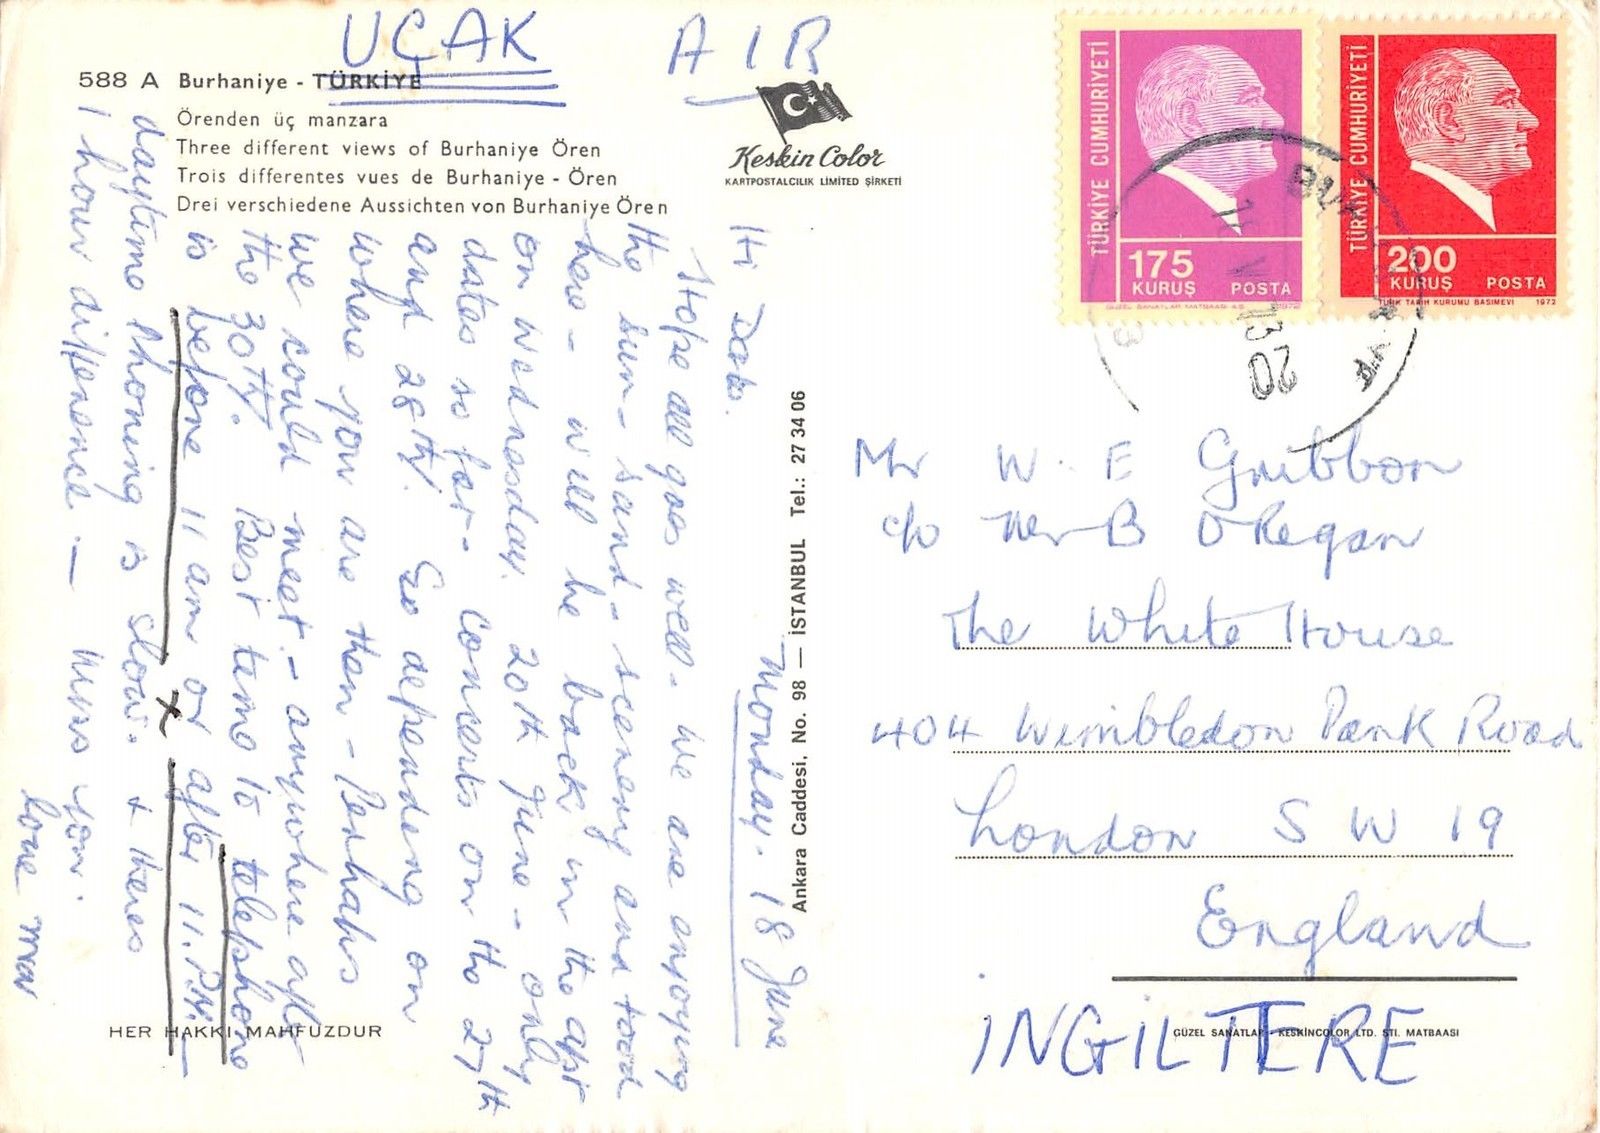 UÇAK AIR
588 A Burhaniye - TÜRKİYE
Örenden üç manzara
Three different views of Burhaniye Ören
Trois differentes vues de Burhaniye - Ören
Drei verschiedene Aussichten von Burhaniye Ören
Keskin Color
KARTPOSTALCILIK LIMITED ŞİRKETİ
TÜRKİYE CUMHURİYETİ
175
KURUŞ POSTA
GÜZEL SANATLAR MATBAASI A.S. 1972
TÜRKİYE CUMHURİYETİ
200
KURUŞ POSTA
TÜRK TARİH KURUMU BASIMEVİ 1972
13
20
Monday. 18 June
Hi
Hope all goes well - We are enjoying
the sun - sand - scenery and food
here - will be back in the apt
on Wednesday. 20th June - only
dates so far - Concerts on the 27th
and 28th. So depending on
where you are then - Perhaps
we could meet - anywhere aft
the 30th. Best time to telephone
is before 11 am or after 11. P.M. -
x
daytime phoning is slow. + theres
1 hour difference. - Miss you.
love
Ankara Caddesi, No. 98 — İSTANBUL Tel.: 27 34 06
Mr W. E Gribbon
c/o B O Regan
The White House
404 Wimbledon Park Road
London S W 19
England
INGİLTERE
HER HAKKI MAHFUZDUR
GÜZEL SANATLAR - KESKİNCOLOR LTD. ŞTİ. MATBAASI